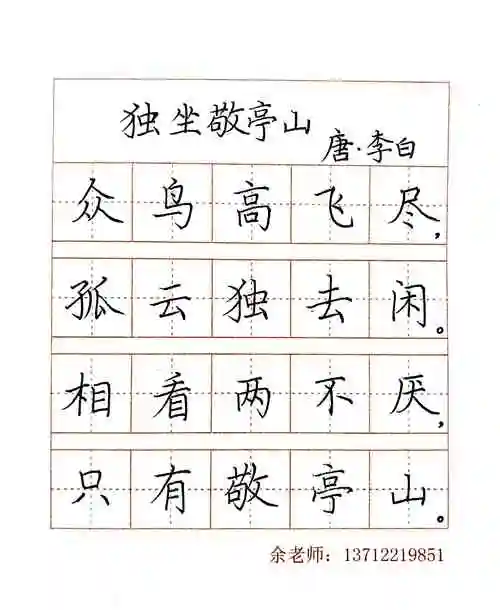 独坐敬亭山
唐·李白
众鸟高飞尽,
孤云独去闲。
相看两不厌,
只有敬亭山。
余老师：13712219851